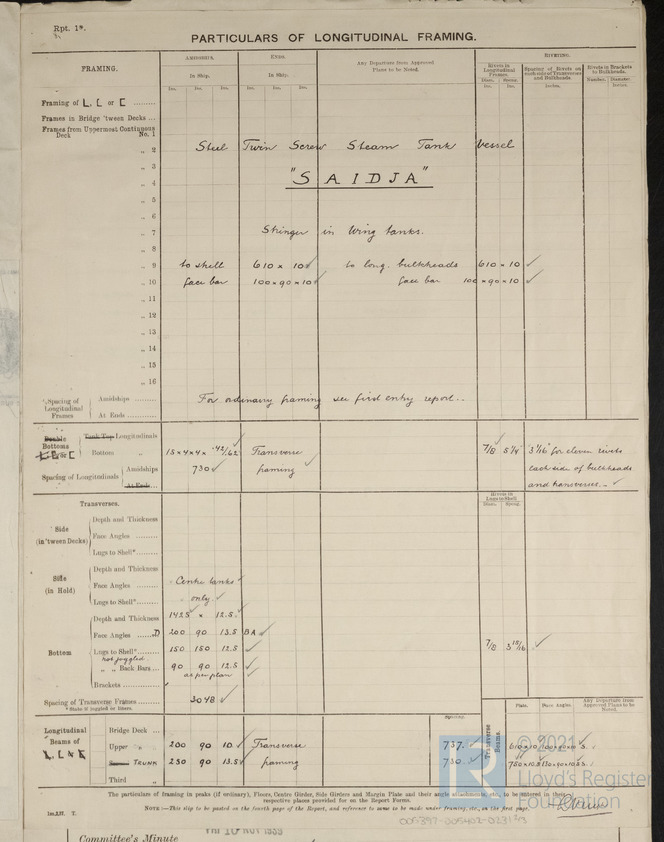 Rpt. 1*.
PARTICULARS OF LONGITUDINAL FRAMING.
FRAMING.
AMIDSHIPS.
ENDS.
Any Departure from Approved
Plans to be Noted.
RIVETING.
In Ship.
In Ship.
Rivets in
Longitudinal
Frames.
Spacing of Rivets on
each side of Transverses
and Bulkheads.
Rivets in Brackets
to Bulkheads.
Diam. Spcng.
Number. Diameter.
Ins. Ins. Ins. Ins. Ins. Ins. Ins. Ins. Inches. Inches.
Framing of L, L or [
Frames in Bridge 'tween Decks ...
Frames from Uppermost Continuous
Deck No. 1
„ 2 Steel Twin Screw Steam Tank Vessel
„ 3
„ 4 "SAIDJA"
„ 5
„ 6
„ 7 Stringer in Wing tanks.
„ 8
„ 9 to shell 610 x 10 ✓ to long. bulkheads 610 x 10 ✓
„ 10 face bar 100 x 90 x 10 ✓ face bar 100 x 90 x 10 ✓
„ 11
„ 12
„ 13
„ 14
„ 15
„ 16
Spacing of
Longitudinal
Frames
Amidships
At Ends
For ordinary framing see first entry report..
Double
Bottoms
L, L or [
Tank Top Longitudinals
Bottom „ 15 x 4 x 4 x .42/.62 ✓ Transverse ✓ 7/8 5 1/4 3 7/16" for eleven rivets
Spacing of Longitudinals Amidships 730 ✓ framing ✓ each side of bulkheads
At Ends and transverses. ✓
Transverses.
Rivets in
Lugs to Shell
Diam. Spcng.
Side
(in 'tween Decks)
Depth and Thickness
Face Angles
Lugs to Shell*
Side
(in Hold)
Depth and Thickness
Face Angles Centre tanks ✓
Lugs to Shell* only. ✓
Bottom
Depth and Thickness 1425 x 12.5 ✓
Face Angles D 200 90 13.5 BA ✓
Lugs to Shell* 150 150 12.5 ✓ 7/8 3 15/16 ✓
not joggled.
„ „ Back Bars ... 90 90 12.5 ✓
as per plan ✓
Brackets
Spacing of Transverse Frames 3048 ✓
*State if joggled or liners.
Spacing.
Transverse
Beams.
Plate. Face Angles. Any Departure from
Approved Plans to be
Noted.
Longitudinal
Beams of
L, L or [
Bridge Deck ...
Upper „ 200 90 10 ✓ Transverse 737. ✓
TRUNK 250 90 13.5 ✓ framing 730. ✓
Third „
The particulars of framing in peaks (if ordinary), Floors, Centre Girder, Side Girders and Margin Plate and their angle attachments, etc., to be entered in their
respective places provided for on the Report Forms.
NOTE:—This slip to be pasted on the fourth page of the Report, and reference to same to be made under framing, etc., on the first page.
© 2021
LR
Lloyd's Register
Foundation
Committee's Minute